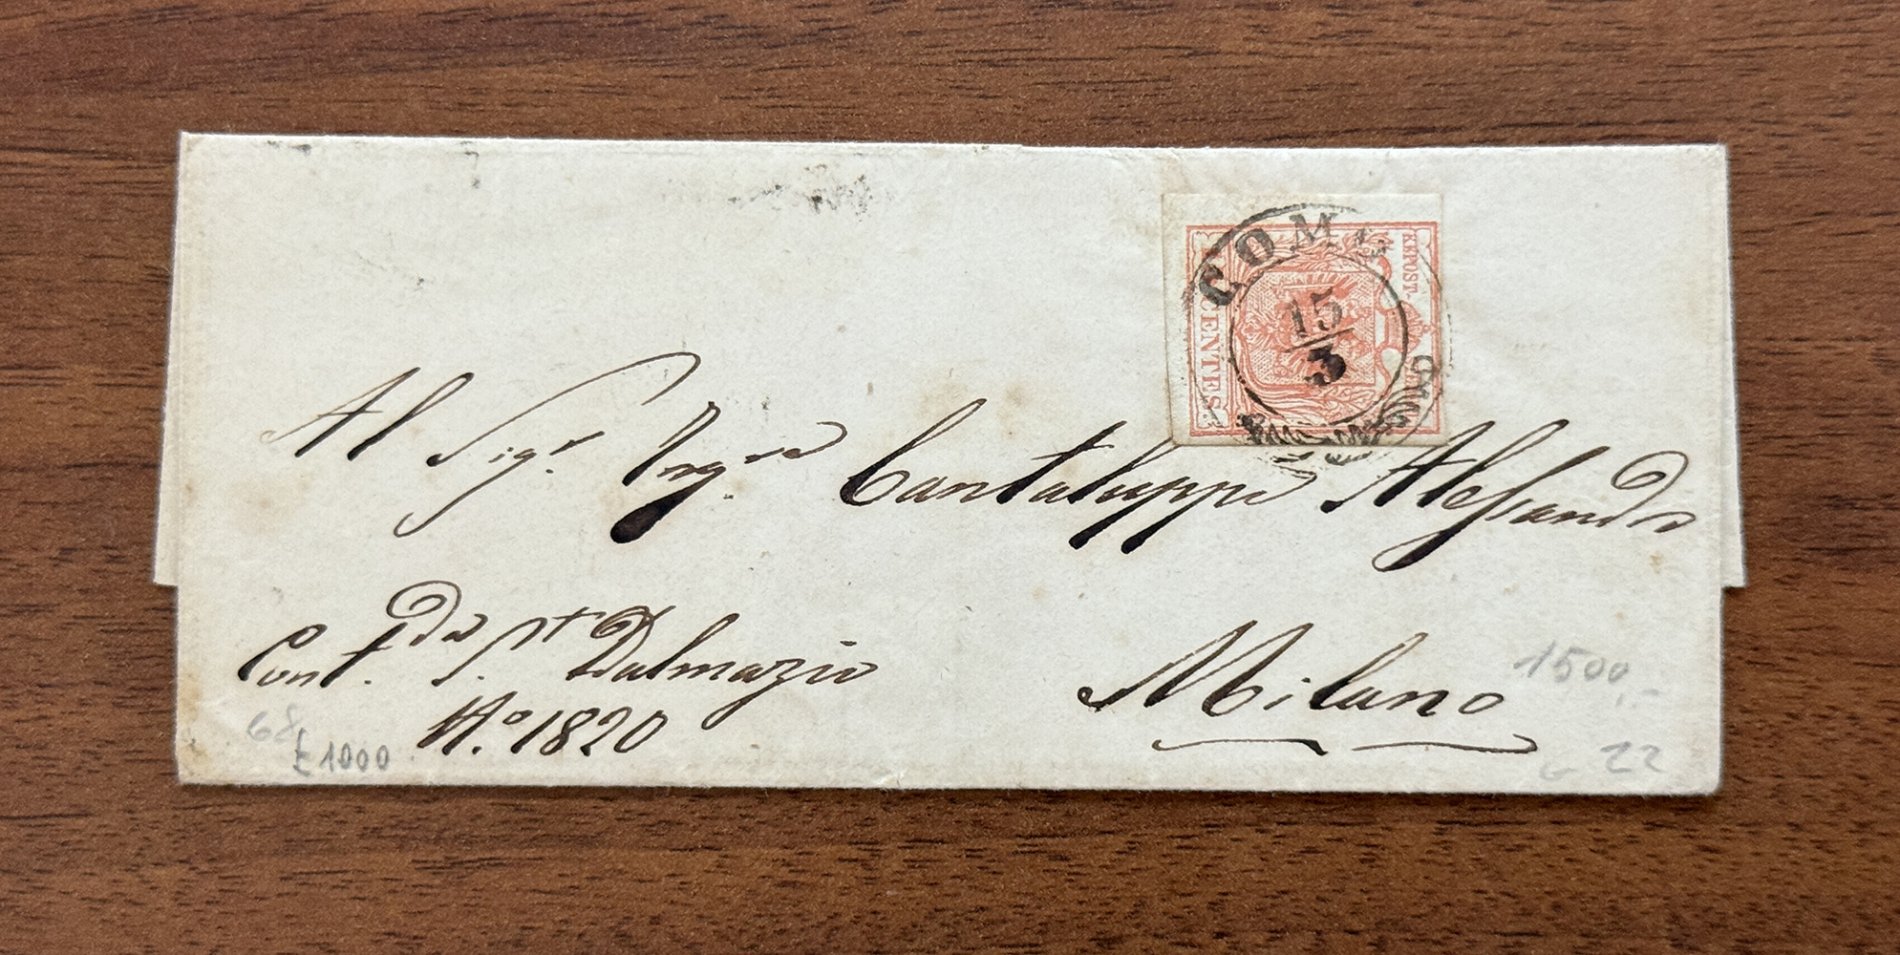 COMO
15
3
KKPOST-
CENTES
Al Sig.r Ing.re Cantaluppi Alessandro
Cont.da S.t Dalmazio
N.o 1820
Milano
1500,-
68
£1000
22